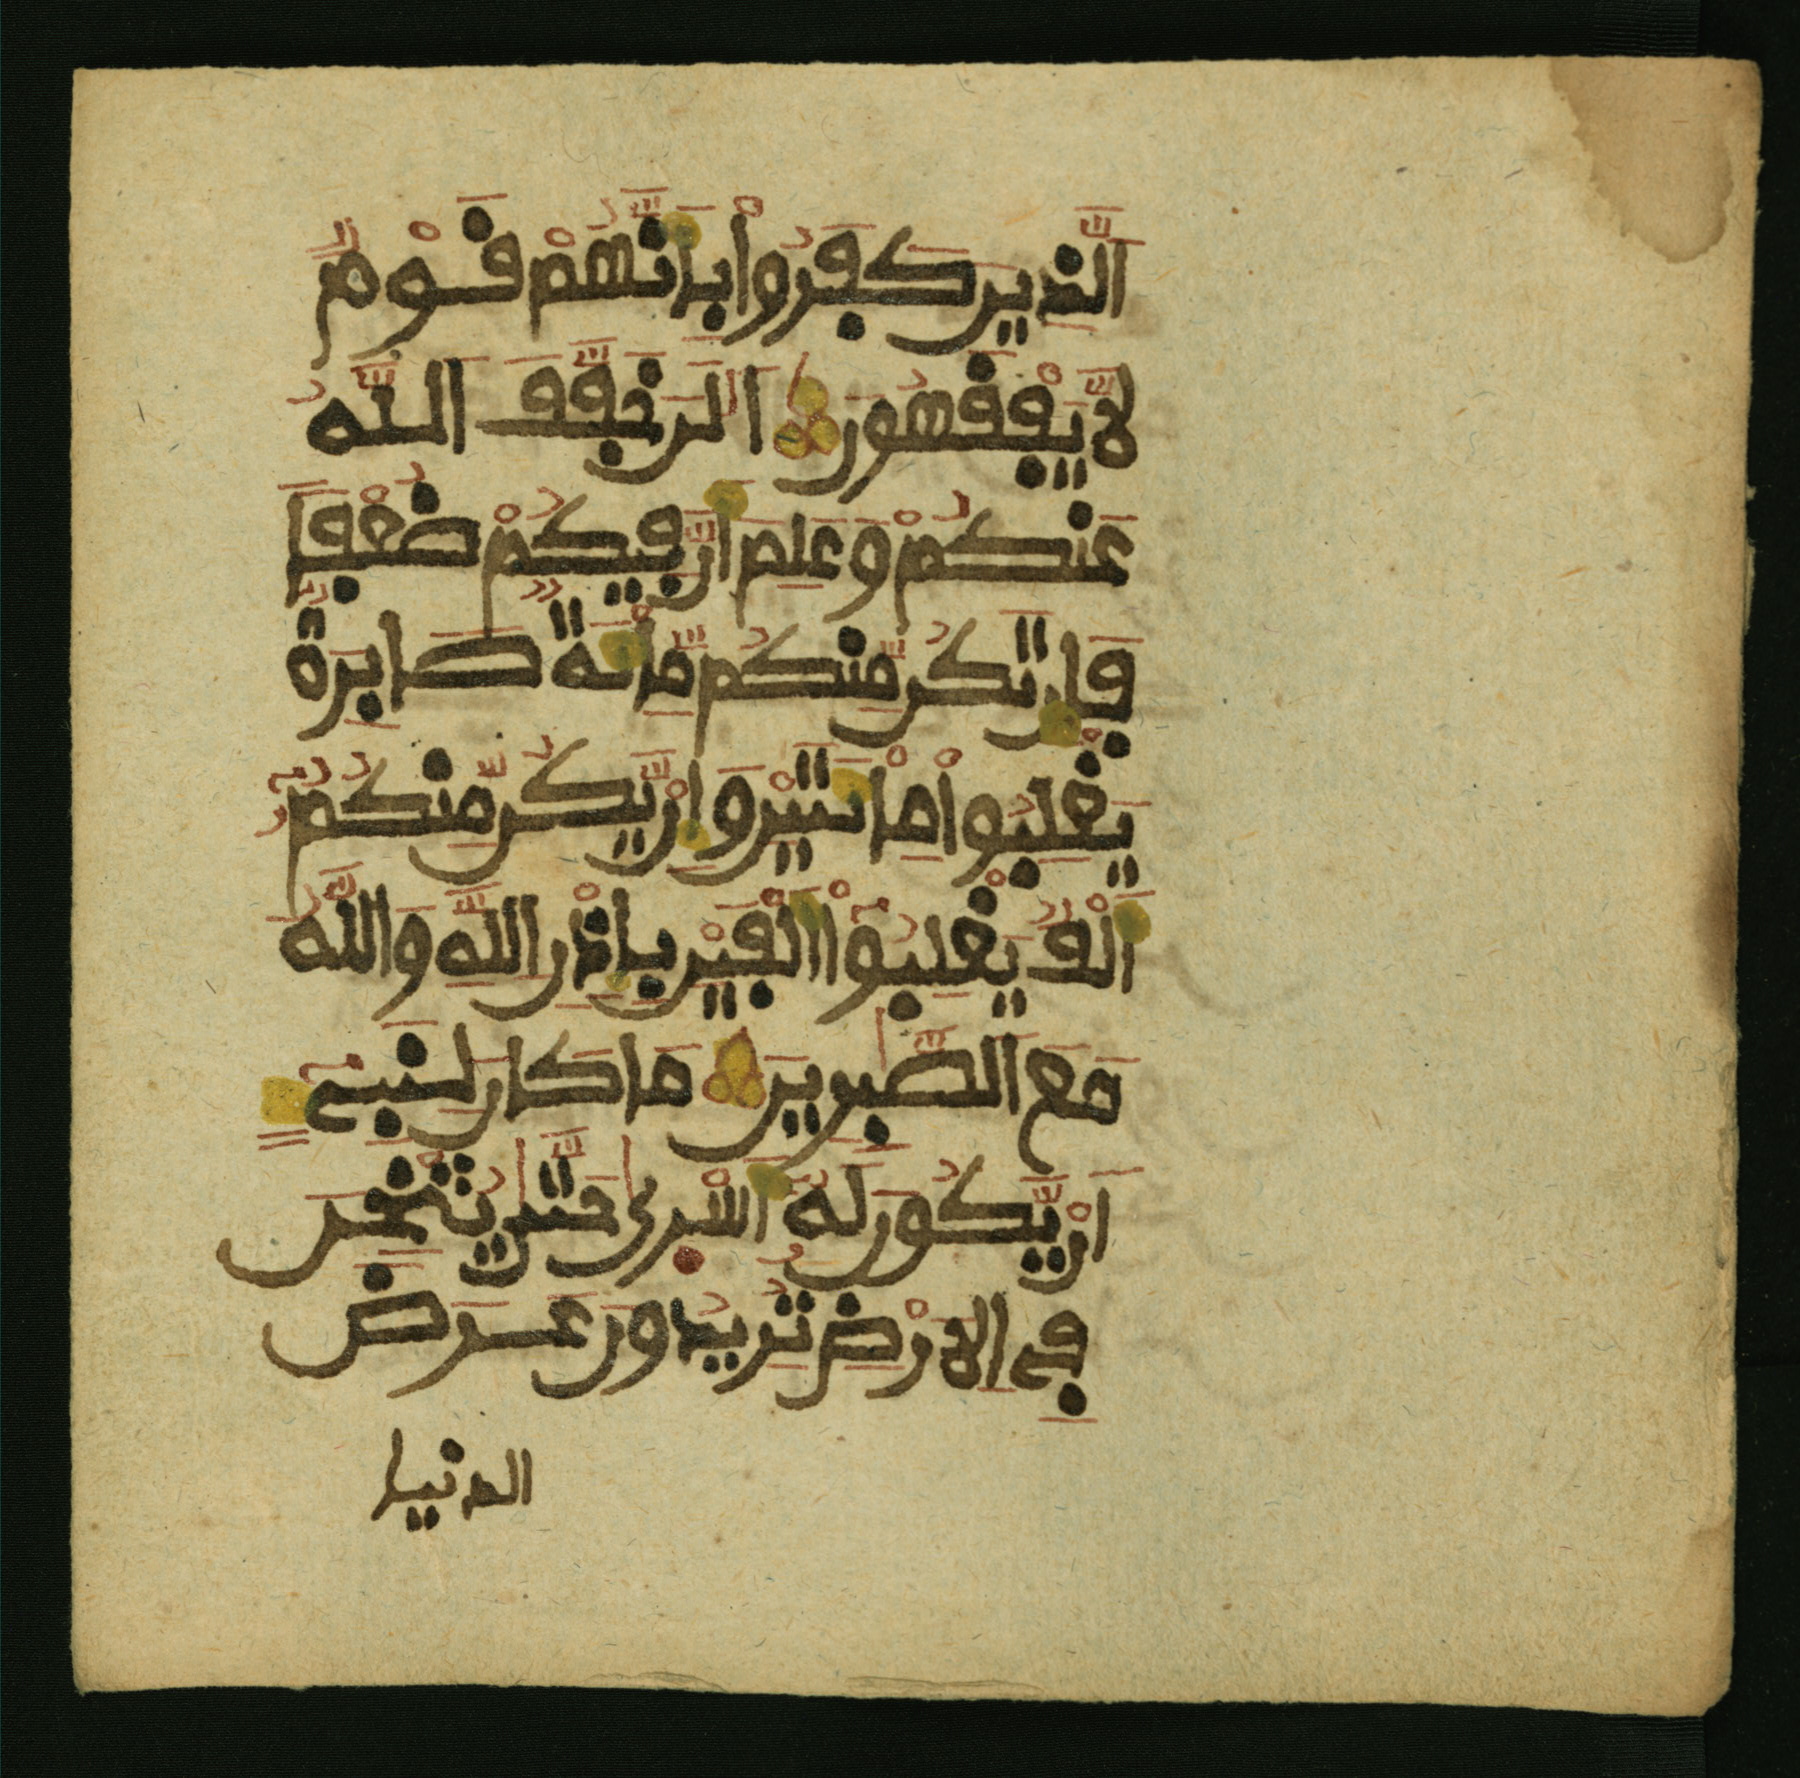 الَّذِينَ كَفَرُوا بِأَنَّهُمْ قَوْمٌ
لَّا يَفْقَهُونَ الَٰنَ خَفَّفَ اللَّهُ
عَنكُمْ وَعَلِمَ أَنَّ فِيكُمْ ضُعْفًا
فَإِن تَكُن مِّنكُم مِّائَةٌ صَابِرَةٌ
يَغْلِبُوا مِائَتَيْنِ وَإِن يَّكُن مِّنكُمُۥٓ
أَلْفٌ يَغْلِبُوٓا أَلْفَيْنِ بِإِذْنِ اللَّهِ وَاللَّهُ
مَعَ الصَّٰبِرِينَ مَا كَانَ لِنَبِيٓءٍ
أَن يَّكُونَ لَهُۥٓ أَسْرَىٰ حَتَّىٰ يُثْخِنَ
فِي الَارْضِ تُرِيدُونَ عَرَضَ
الدنيا